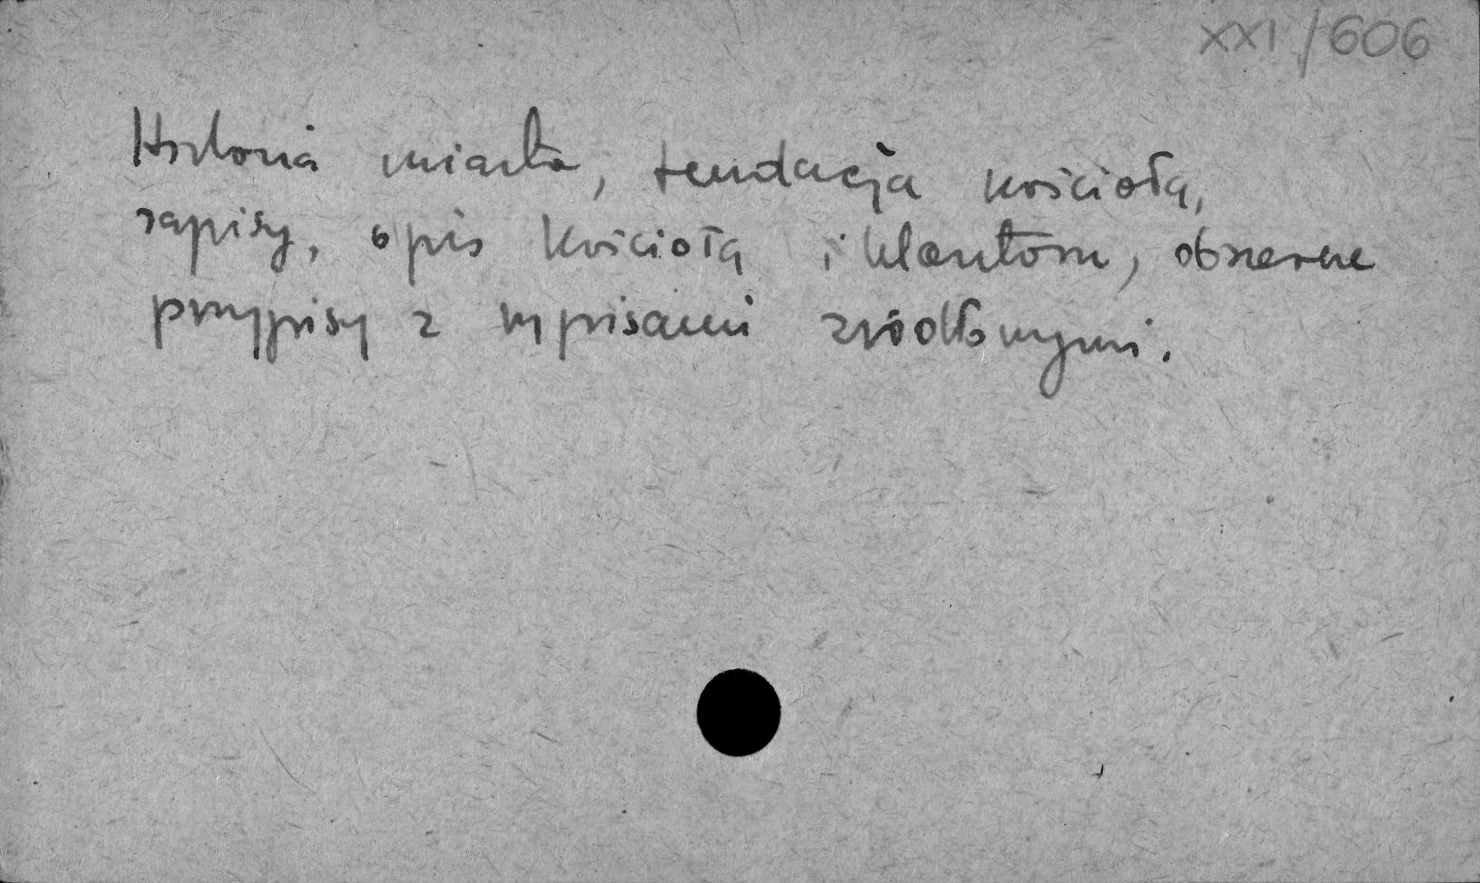 XXI/606
Historia miasta, fundacja kościoła,
zapisy, opis kościoła i klasztoru, obszerne
przypisy z wypisami źródłowymi.